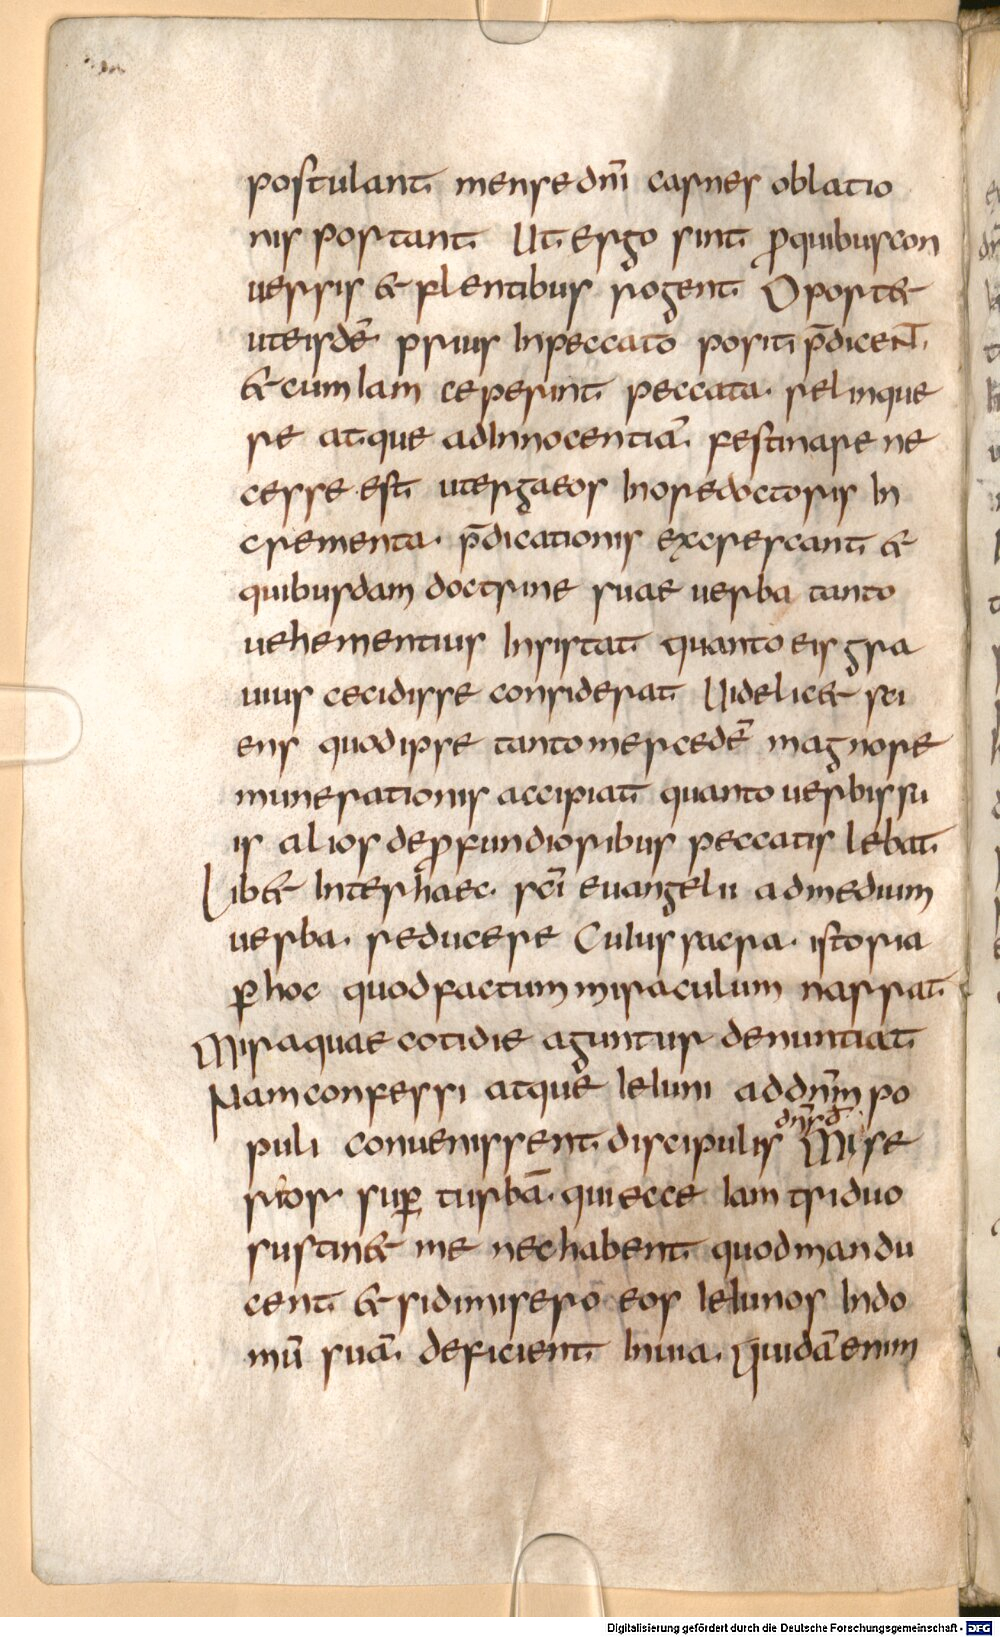 postulant mense dn̄i carnes oblatio
nis portant Ut ergo sint ꝓquibuscon
uersis & flentibus rogent Oport&
uteisdē prius Inpeccato positi p̄dicent.
& cum Iam ceperint peccata. relinque
re atque adInnocentiā. festinare ne
cesse est utergaeos Inoredoctoris In
crementa. p̄dicationis excrescant &
quibusdam doctrine suae uerba tanto
uehementius Insistat quanto eis gra
uius cecidisse considerat Uidelic& sci
ens quod ipse tanto mercedē magnore
munerationis accipiat quanto uerbissu
is alios deꝓfundioribus peccatis lebat.
Lib& Inter haec. sc̄i euangelii admedium
uerba. reducere Cuius sacra. istoria
ꝑ hoc quod factum miraculum narrat.
Miraquae cotidie aguntur denuntiat
Nam confessi atque Ieiuni addn̄m po
dn̄s d̄
puli conuenissent discipulis Mise
rior suꝑ turbā. qui ecce Iam triduo
sustin& me nec habent quod mandu
cent & sidimisero eos Ieiunos Indo
mū suā. deficient Inuia. Quidā enim
Digitalisierung gefördert durch die Deutsche Forschungsgemeinschaft - DFG